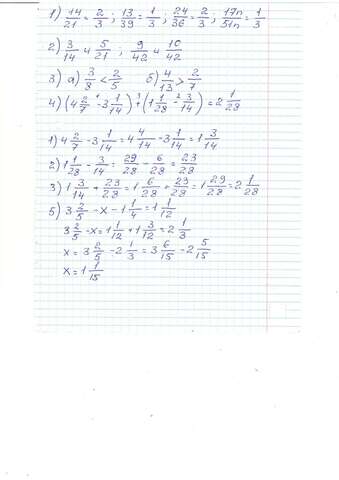 1) 14/21 = 2/3 ; 13/39 = 1/3 ; 24/36 = 2/3 ; 17n/51n = 1/3
2) 3/14 и 5/21 ; 9/42 и 10/42
3) а) 3/8 < 2/5 б) 4/13 > 2/7
4) (4 2/7 -¹ 3 1/14) +³ (1 1/28 -² 3/14) = 2 1/28
1) 4 2/7 - 3 1/14 = 4 4/14 - 3 1/14 = 1 3/14
2) 1 1/28 - 3/14 = 29/28 - 6/28 = 23/28
3) 1 3/14 + 23/28 = 1 6/28 + 23/28 = 1 29/28 = 2 1/28
5) 3 2/5 - x - 1 1/4 = 1 1/12
3 2/5 - x = 1 1/12 + 1 3/12 = 2 1/3
x = 3 2/5 - 2 1/3 = 3 6/15 - 2 5/15
x = 1 1/15